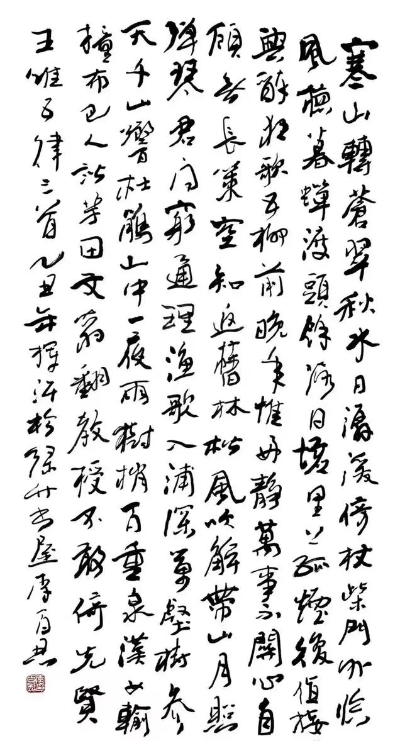 寒山轉蒼翠秋水日潺湲倚杖柴門外臨
風聽暮蟬渡頭餘落日墟里上孤煙復值接
輿醉狂歌五柳前晚年惟好靜萬事不關心自
顧無長策空知返舊林松風吹解帶山月照
彈琴君問窮通理漁歌入浦深萬壑樹參
天千山響杜鵑山中一夜雨樹梢百重泉漢女輸
橦布巴人訟芋田文翁翻教授不敢倚先賢
王維五律三首乙丑年揮汗於綠竹書屋李百忍